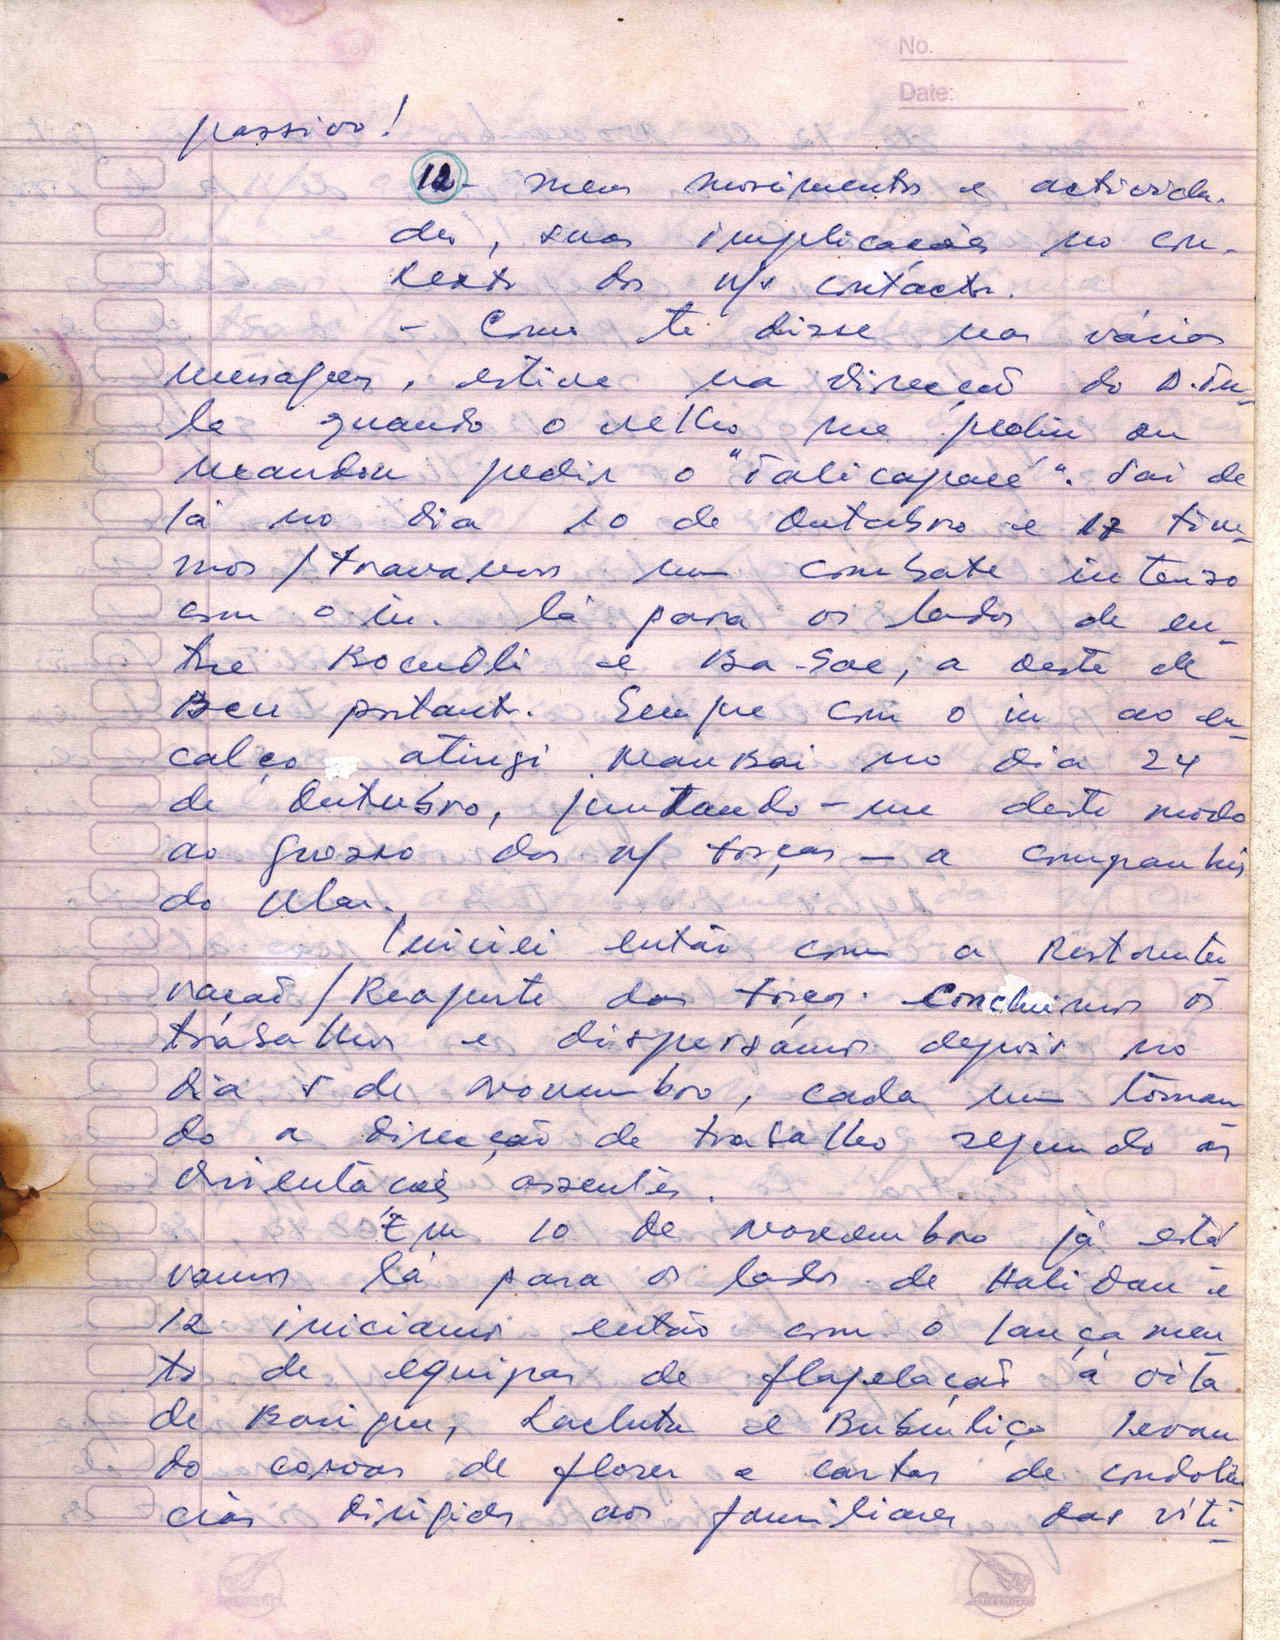 No.
Date:
passivo!
12 - meus movimentos e activida-
des, suas implicações no con-
texto dos n/s contactos.
- Como te disse nas várias
mensagens, estive na direcção do D. Tu-
la quando o velho me pediu ou
mandou pedir o "Talicapacé". Saí de
lá no dia 10 de Outubro e 17 tive-
mos / travamos um combate intenso
com o in. lá para os lados de en-
tre Bocudli e Ba-Soe, a oeste de
Beu portanto. Sempre com o in ao en-
calço atingi MauBai no dia 24
de Outubro, juntando-me deste modo
ao grosso das n/ forças - a companhia
do Ular.
Iniciei então com a
vação / Reajuste das forças. Concluimos os
trabalhos e dispersámos depois no
dia 5 de novembro, cada um toman
do a direcção de trabalho segundo as
orientações assentes.
Em 10 de novembro já está
vamos lá para os lados de HaliDau e
12 iniciamos então com o lançamen
to de equipas de flagelação à vila
de Barique, Lacluta e Bubúliço levan
do coroas de flores e cartas de condolên
cias dirigidas aos familiares das víti-